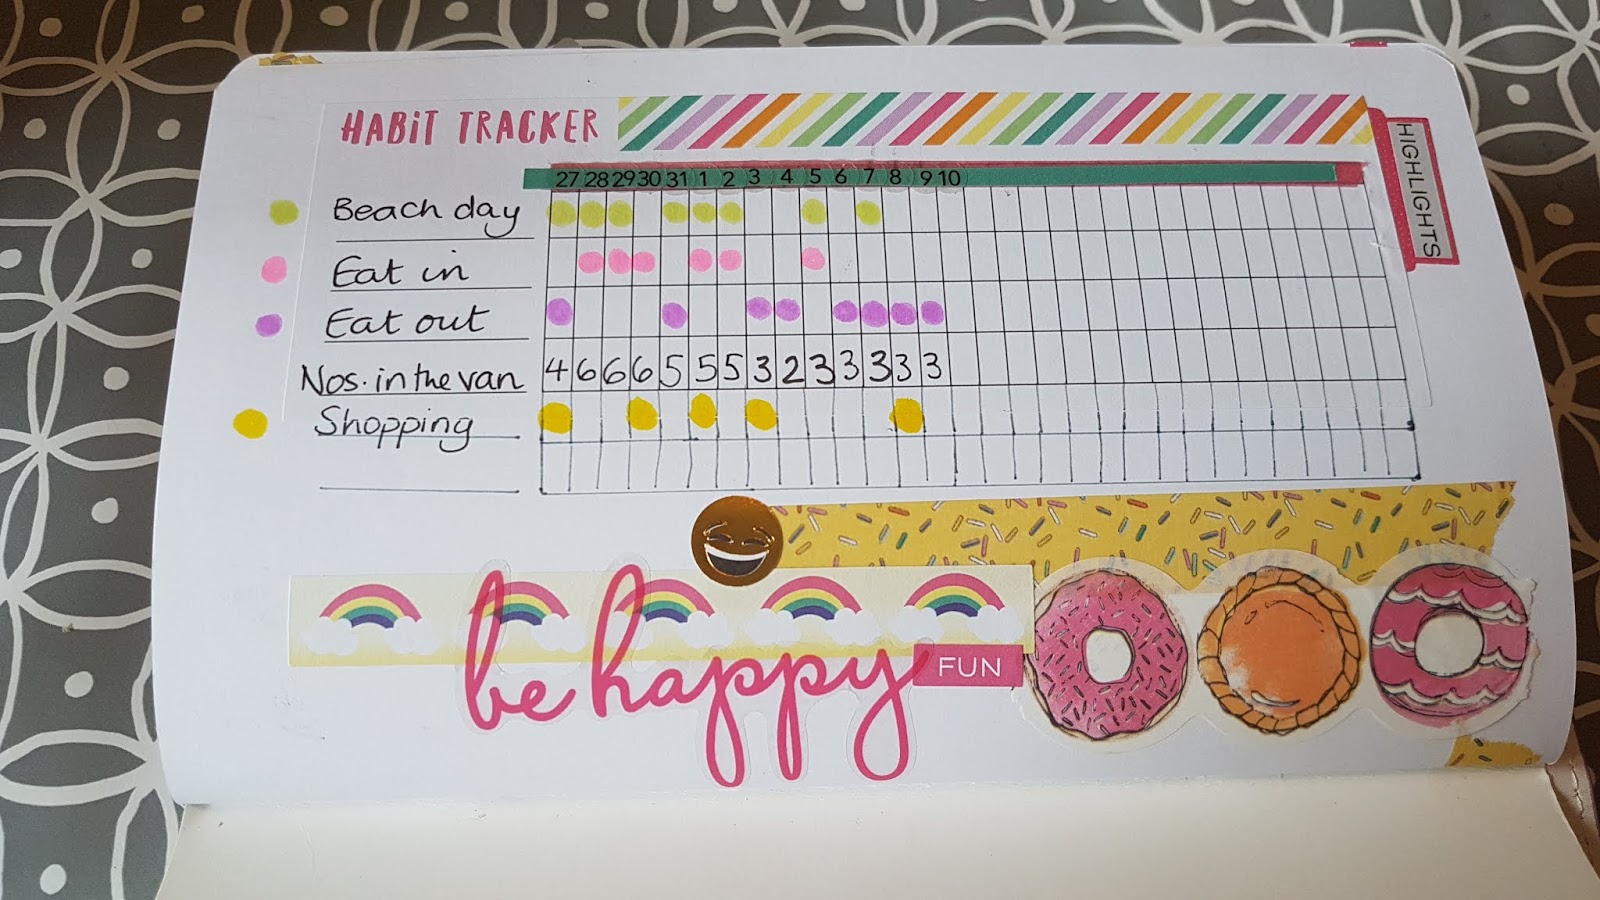 HABIT TRACKER
HIGHLIGHTS
27 28 29 30 31 1 2 3 4 5 6 7 8 9 10
Beach day
Eat in
Eat out
Nos. in the van 4 6 6 6 5 5 5 3 2 3 3 3 3 3
Shopping
be happy
FUN